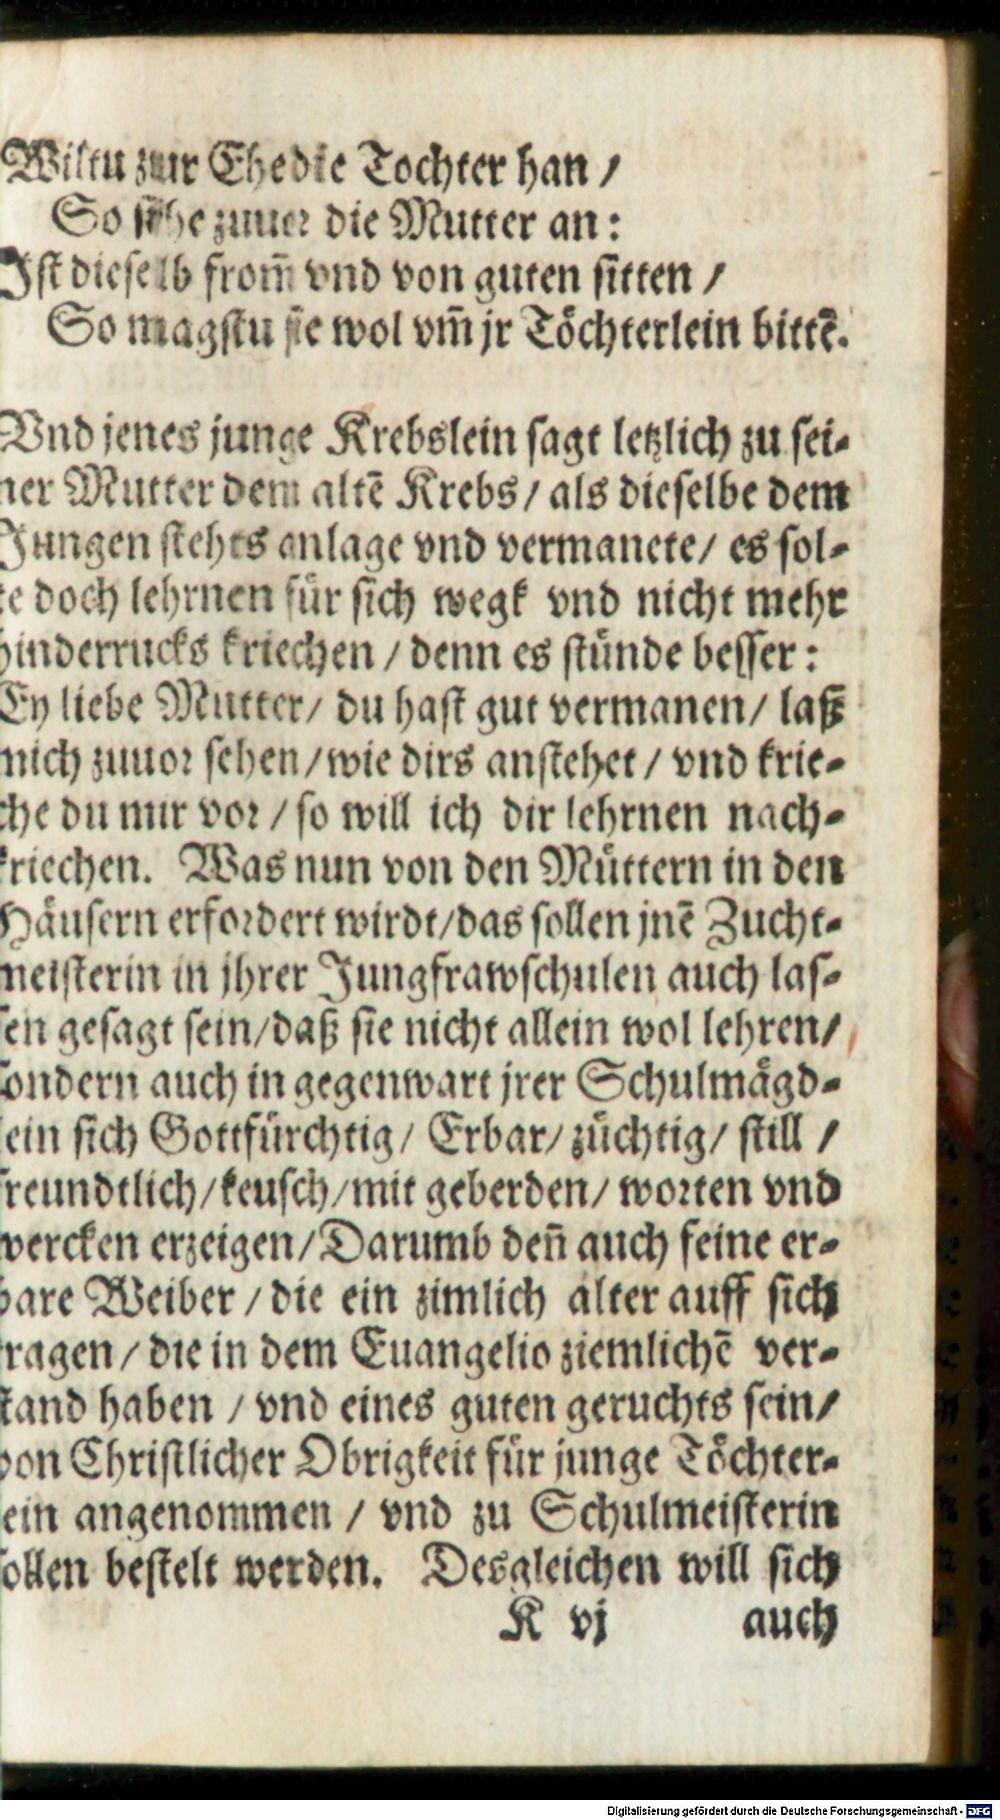 Wiltu zur Ehe die Tochter han /
So sihe zuuor die Mutter an:
Ist dieselb from̃ vnd von guten sitten /
So magstu sie wol vm̃ jr Töchterlein bittẽ.
Vnd jenes junge Krebslein sagt letzlich zu sei-
ner Mutter dem altẽ Krebs / als dieselbe dem
Jungen stehts anlage vnd vermanete / es sol-
te doch lehrnen für sich wegk vnd nicht mehr
hinderrucks kriechen / denn es stünde besser:
Ey liebe Mutter / du hast gut vermanen / laß
mich zuuor sehen / wie dirs anstehet / vnd krie-
che du mir vor / so will ich dir lehrnen nach-
kriechen. Was nun von den Müttern in den
Häusern erfordert wirdt / das sollen jnẽ Zucht-
meisterin in jhrer Jungfrawschulen auch las-
sen gesagt sein / daß sie nicht allein wol lehren /
sondern auch in gegenwart jrer Schulmägd-
lein sich Gottfürchtig / Erbar / züchtig / still /
freundtlich / keusch / mit geberden / worten vnd
wercken erzeigen / Darumb deñ auch feine er-
bare Weiber / die ein zimlich alter auff sich
tragen / die in dem Euangelio ziemlichẽ ver-
stand haben / vnd eines guten geruchts sein /
von Christlicher Obrigkeit für junge Töchter-
lein angenommen / vnd zu Schulmeisterin
sollen bestelt werden. Desgleichen will sich
K vj auch
Digitalisierung gefördert durch die Deutsche Forschungsgemeinschaft - DFG